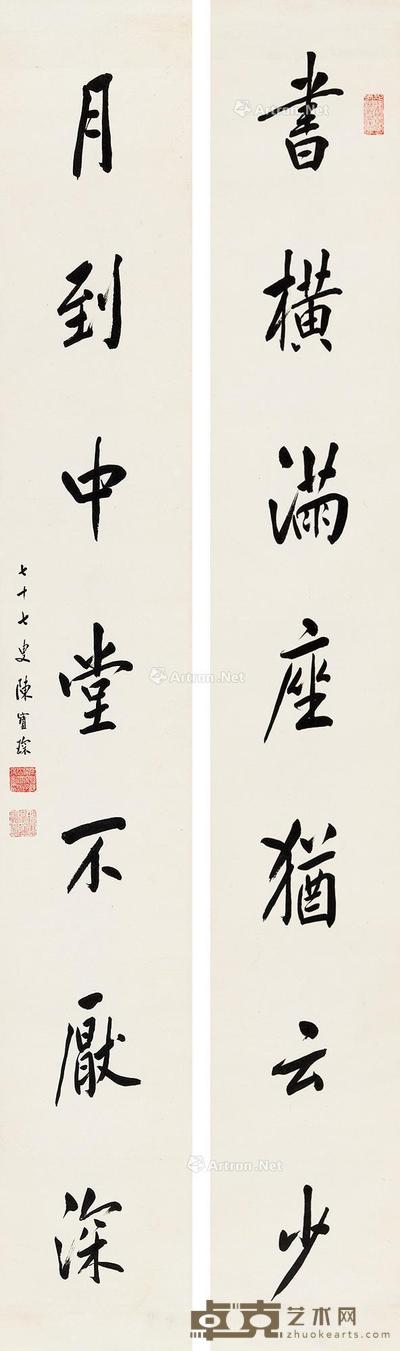 書橫滿座猶云少
月到中堂不厭深
七十七叟陳寶琛
Artron.Net
Artron.Net
Artron.Net
Artron.Net
Artron.Net
卓克艺术网
zhuokearts.com